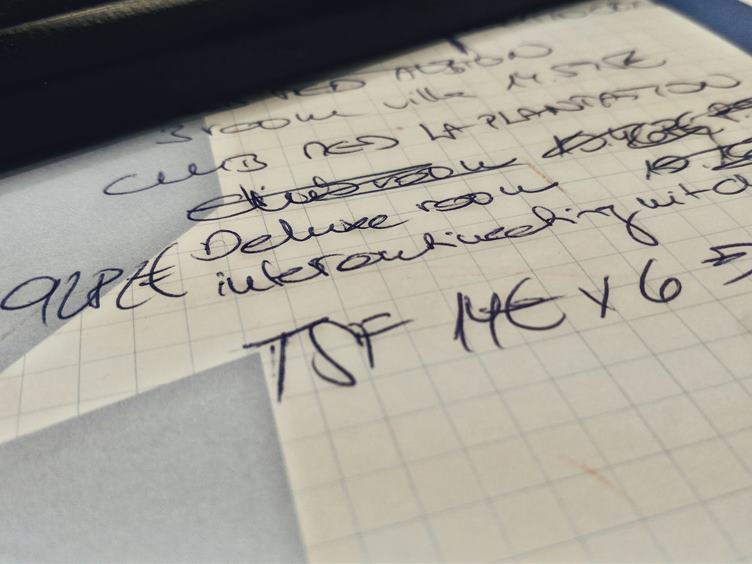 MED ALBION
3 room villa 14.572€
CLUB MED LA PLANTATION
Deluxe room
9282€ interconnecting with d
TSF 14€ x 6 =